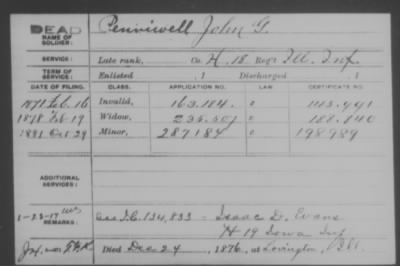 DEAD
NAME OF SOLDIER: Penniwell John G.
SERVICE: Late rank, Co. H, 18 Reg't Ill. Inf.
TERM OF SERVICE: Enlisted , 1 Discharged , 1
DATE OF FILING. CLASS. APPLICATION NO. LAW CERTIFICATE NO.
1871 Feb. 16 Invalid, 163.184. 
1878 Feb 19 Widow, 
1881 Oct 29 Minor, 287184 198989
ADDITIONAL SERVICES:
1-23-17 See I.C. 134,833 = Isaac D. Evans
REMARKS: H 19 Iowa Inf
Died Dec 24, 1876, at Lovington, Ill.